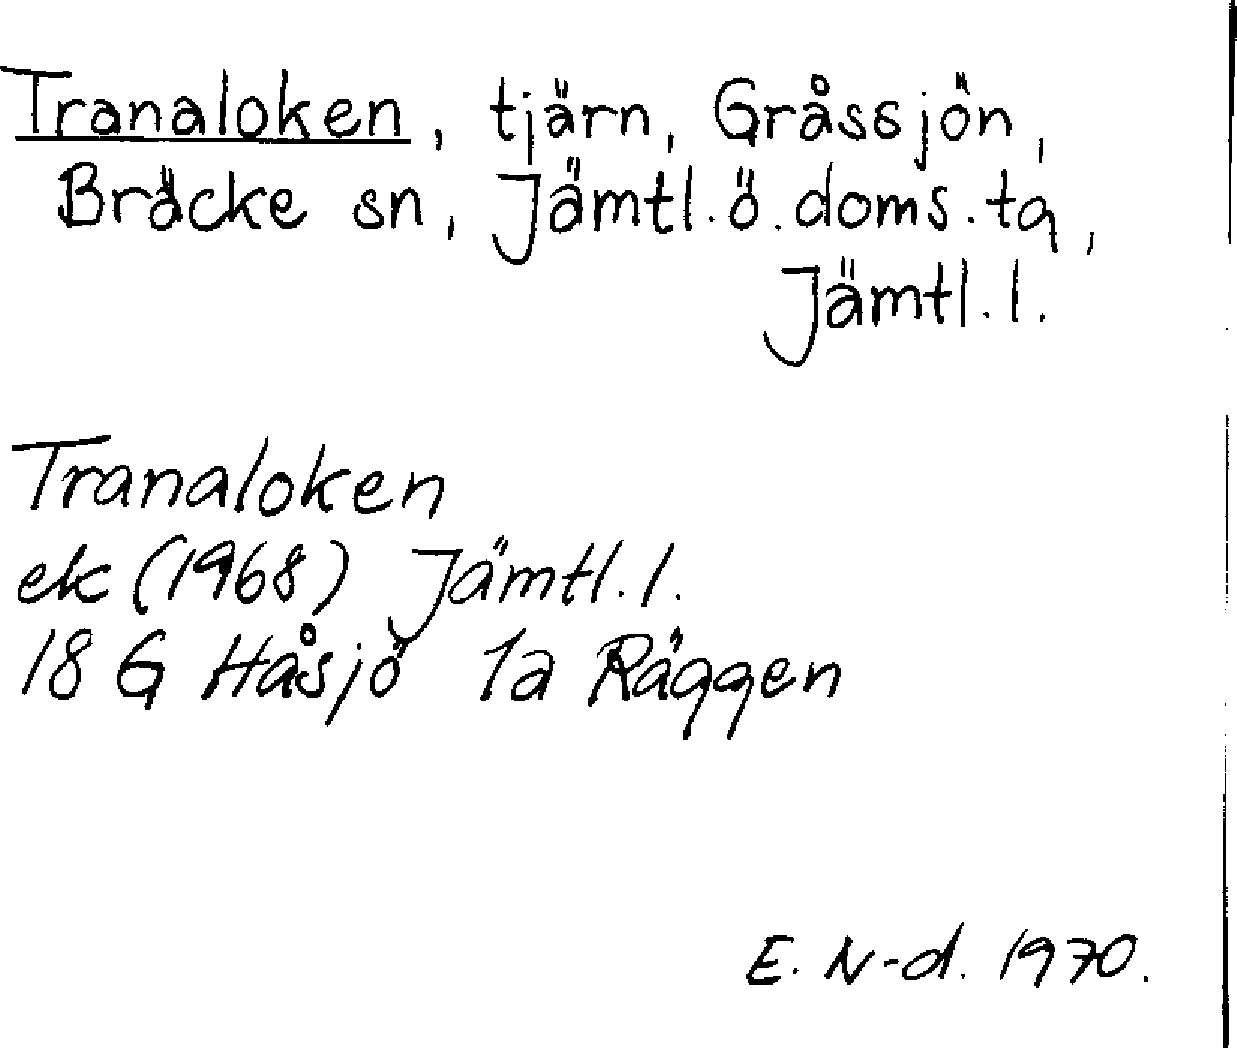 Tranaloken, tjärn, Gråssjön,
Bräcke sn, Jämtl. ö. doms. tg,
Jämtl. l.
Tranaloken
ek (1968) Jämtl. l.
18 G Håsjö 1a Räggen
E. N-d. 1970.